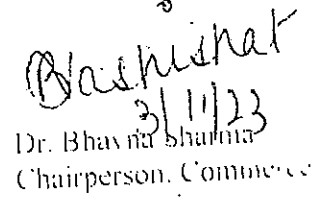 Bashishat
3/11/23
Dr. Bhavna Sharma
Chairperson, Commerce